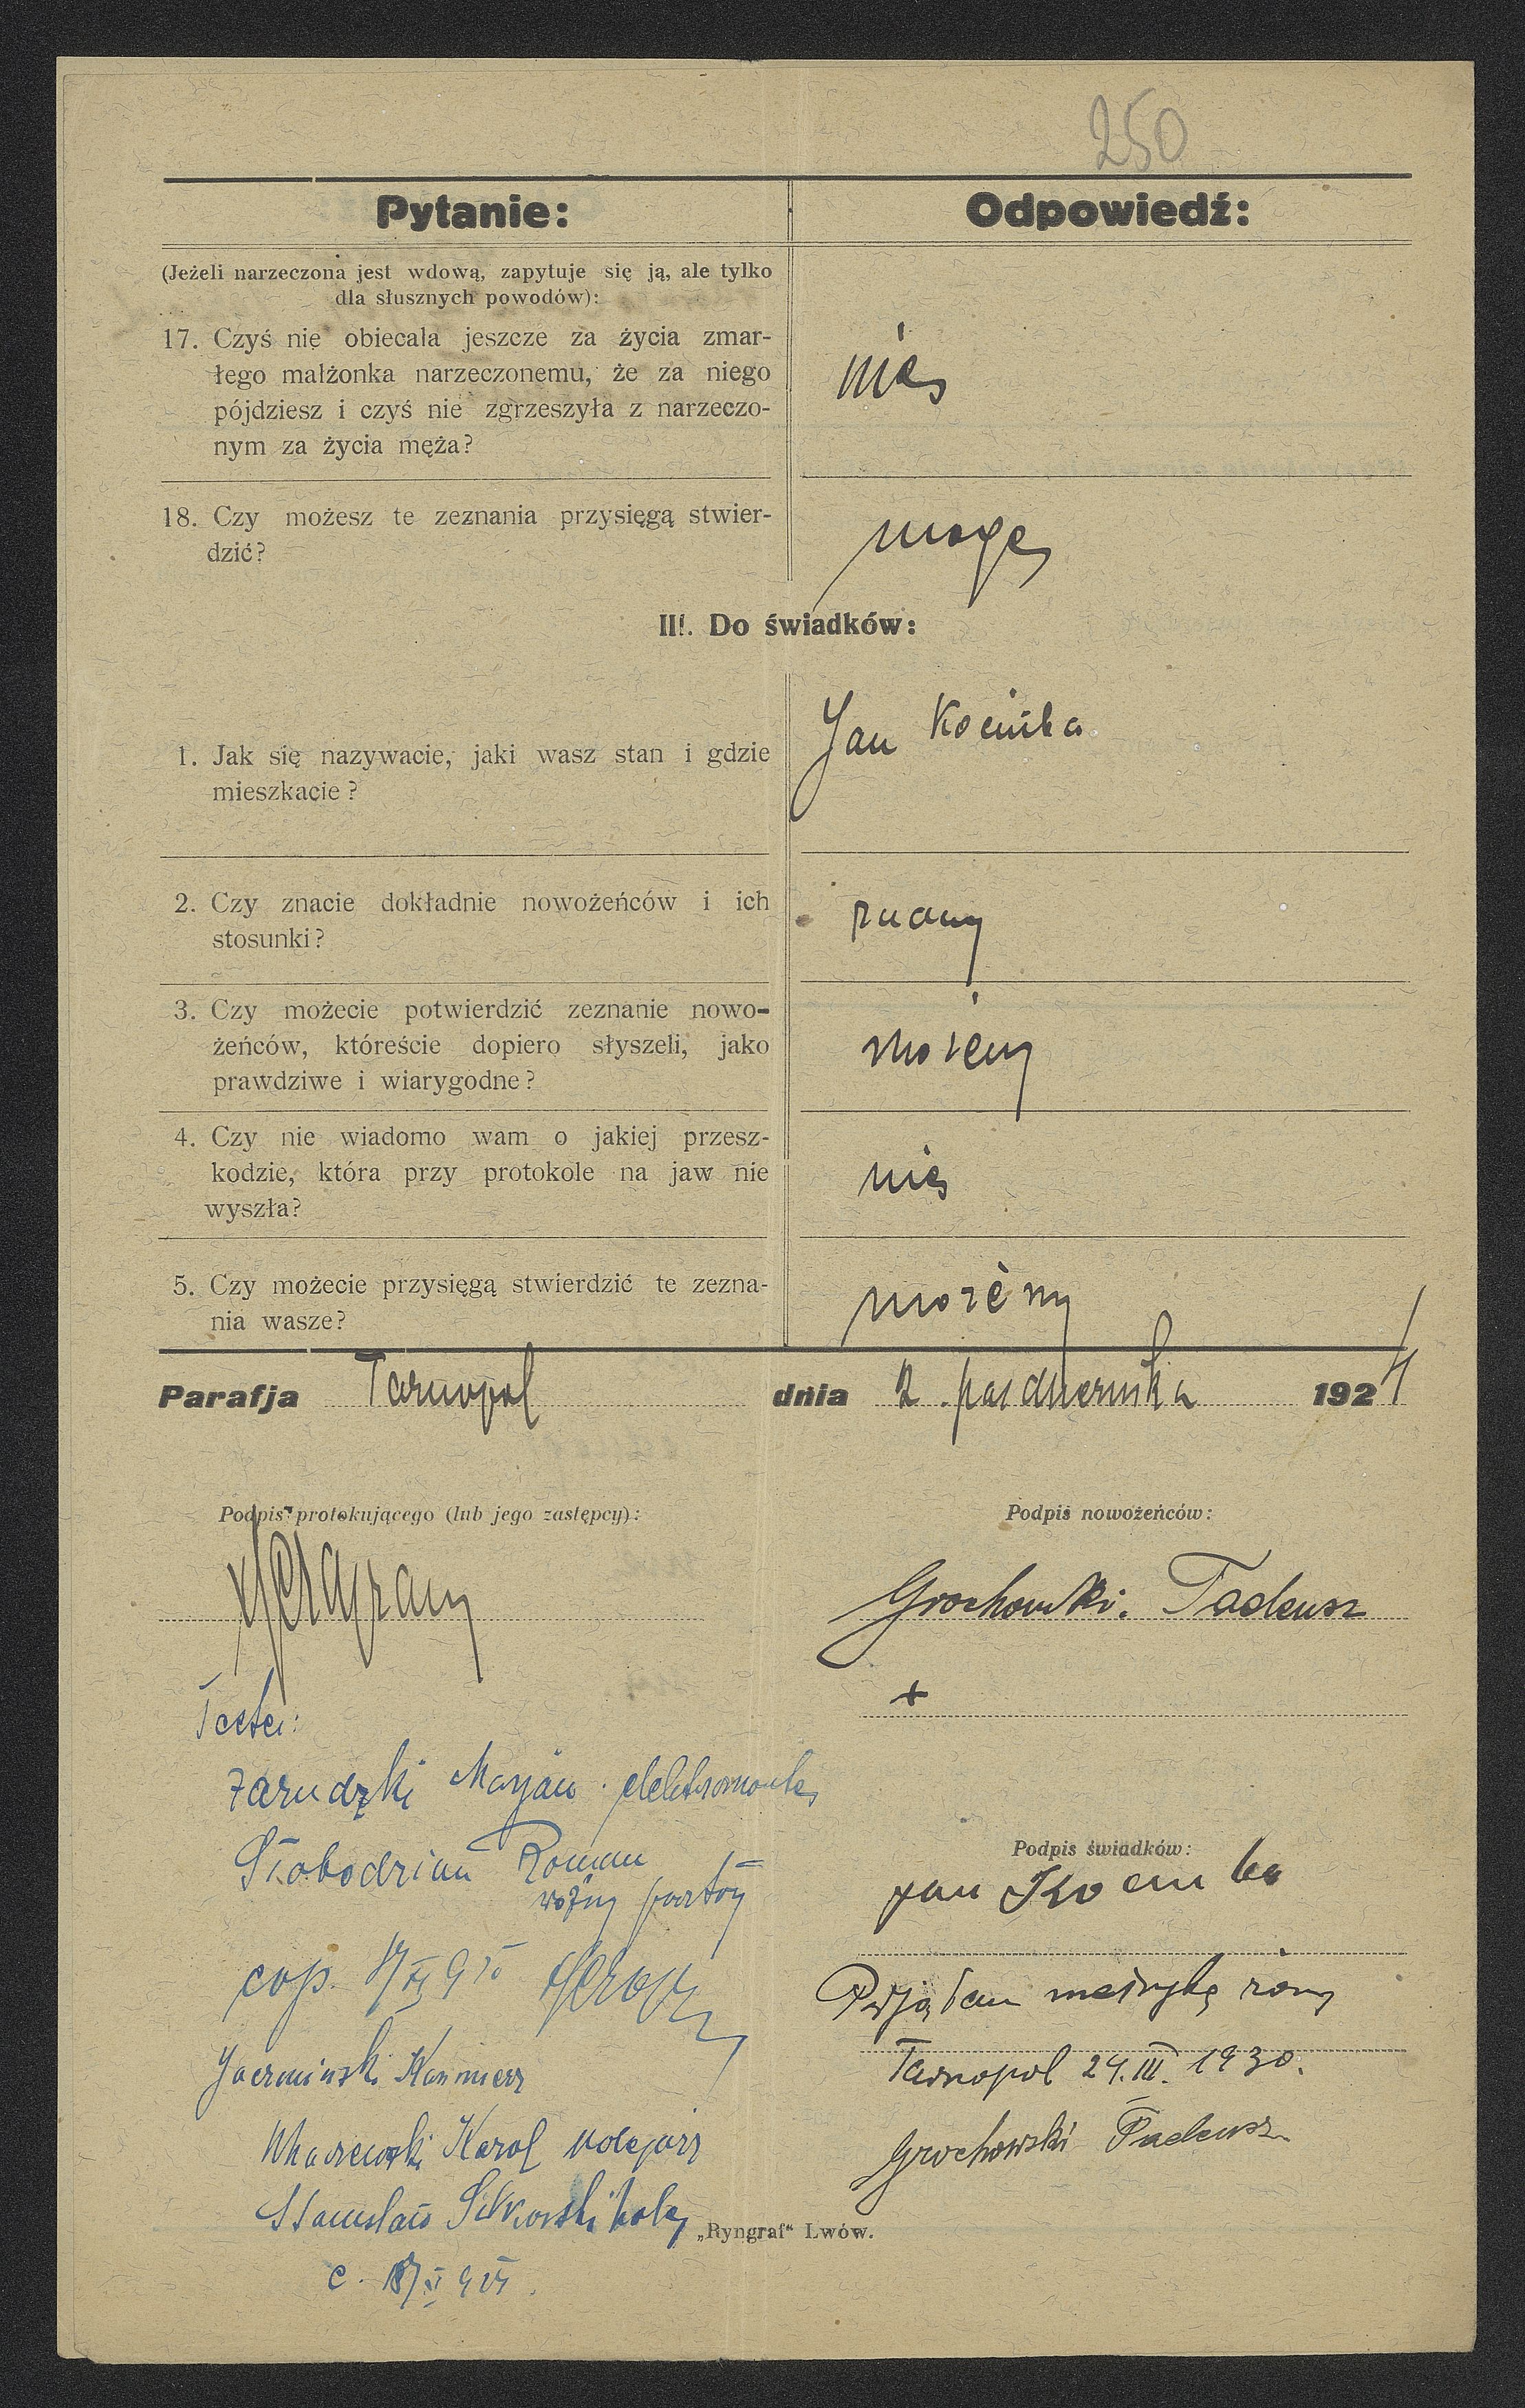 250
Pytanie: Odpowiedź:
(Jeżeli narzeczona jest wdową, zapytuje się ją, ale tylko
dla słusznych powodów):
17. Czyś nie obiecała jeszcze za życia zmar-
łego małżonka narzeczonemu, że za niego
pójdziesz i czyś nie zgrzeszyła z narzeczo-
nym za życia męża?
nie
18. Czy możesz te zeznania przysięgą stwier-
dzić?
mogę
III. Do świadków:
1. Jak się nazywacie, jaki wasz stan i gdzie
mieszkacie?
Jan
2. Czy znacie dokładnie nowożeńców i ich
stosunki?
znamy
3. Czy możecie potwierdzić zeznanie nowo-
żeńców, któreście dopiero słyszeli, jako
prawdziwe i wiarygodne?
możemy
4. Czy nie wiadomo wam o jakiej przesz-
kodzie, która przy protokole na jaw nie
wyszła?
nie
5. Czy możecie przysięgą stwierdzić te zezna-
nia wasze?
możemy
Parafja Tarnopol dnia 2. października 1924
Podpis protokującego (lub jego zastępcy):
Podpis nowożeńców:
Grochowski. Tadeusz
+
Testes:
Zarudzki Marjan
Roman
woźny
cop.
Kazimierz
Karol kolejarz
Stanisław
c.
Podpis świadków:
Jan
metrykę żony
Tarnopol 24. III. 1930.
Grochowski Tadeusz
„Ryngraf“ Lwów.